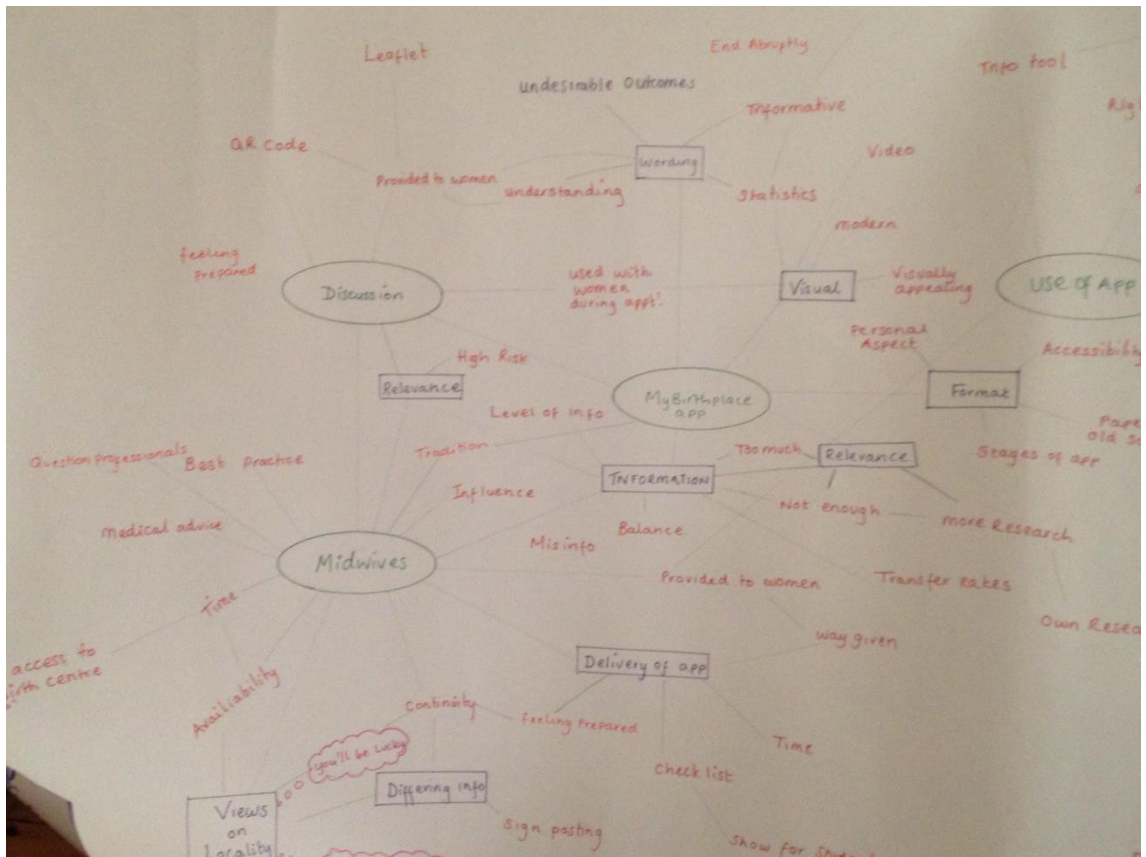 Leaflet
End Abruptly
Info tool
undesirable outcomes
Informative
QR code
Wording
Video
Provided to women
understanding
Statistics
modern
feeling
prepared
Discussion
used with
women
during appt?
Visual
Visually
appealing
USE OF APP
Personal
Aspect
Accessibility
High Risk
Relevance
MyBirthplace
app
Format
Level of info
Tradition
Too much
Relevance
Stages of app
Question professionals
Best practice
INFORMATION
Influence
Not enough
more Research
Medical advice
Balance
Misinfo
Midwives
Provided to women
Transfer rates
Time
Way given
access to
Delivery of app
centre
Availiability
Continuity
feeling prepared
Time
you'll be lucky
Check list
Differing info
Views
on
Locality
Sign posting
Show for